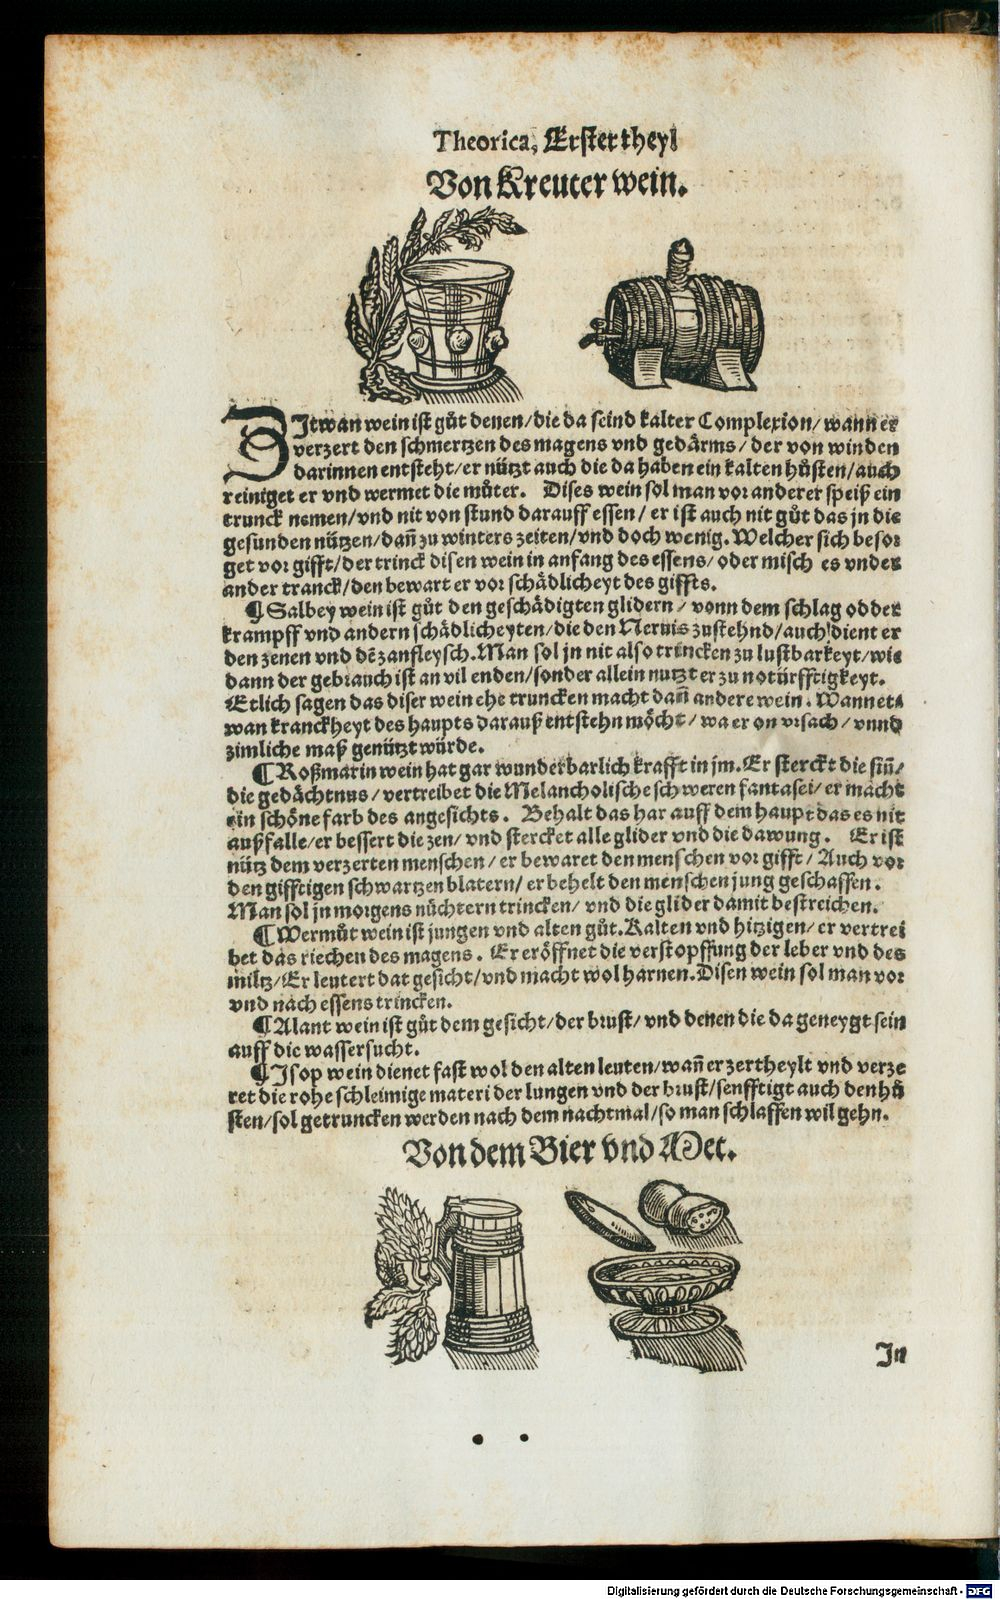 Theorica, Erster theyl
Von Kreuter wein.
ZItwan wein ist gůt denen/die da seind kalter Complexion/wann er
verzert den schmertzen des magens vnd gedärms/der von winden
darinnen entsteht/er nützt auch die da haben ein kalten hůsten/auch
reiniget er vnd wermet die můter. Dises wein sol man vor anderer speiß ein
trunck nemen/vnd nit von stund darauff essen/er ist auch nit gůt das jn die
gesunden nützen/dañ zu winters zeiten/vnd doch wenig. Welcher sich besor
get vor gifft/der trinck disen wein in anfang des essens/oder misch es vnder
ander tranck/den bewart er vor schädlicheyt des giffts.
¶ Salbey wein ist gůt den geschädigten glidern/vonn dem schlag odder
krampff vnd andern schädlicheyten/die den Neruis zustehnd/auch dient er
den zenen vnd dẽ zanfleysch. Man sol jn nit also trincken zu lustbarkeyt/wie
dann der gebrauch ist an vil enden/sonder allein nutzt er zu notürfftigkeyt.
Etlich sagen das diser wein ehe truncken macht dañ andere wein. Wann et⸗
wan kranckheyt des haupts darauß entstehn möcht/wa er on vrsach/vnnd
zimliche maß genützt würde.
¶ Roßmarin wein hat gar wunderbarlich krafft in jm. Er sterckt die siñ/
die gedächtnus/vertreibet die Melancholische schweren fantasei/er macht
ein schöne farb des angesichts. Behalt das har auff dem haupt das es nit
außfalle/er bessert die zen/vnd stercket alle glider vnd die dawung. Er ist
nütz dem verzerten menschen/er bewaret den menschen vor gifft/Auch vor
den gifftigen schwartzen blatern/er behelt den menschen jung geschaffen.
Man sol jn morgens nüchtern trincken/vnd die glider damit bestreichen.
¶ Wermůt wein ist jungen vnd alten gůt. Kalten vnd hitzigen/er vertrei
bet das riechen des magens. Er eröffnet die verstopffung der leber vnd des
miltz/Er leutert dat gesicht/vnd macht wol harnen. Disen wein sol man vor
vnd nach essens trincken.
¶ Alant wein ist gůt dem gesicht/der brust/vnd denen die da geneygt sein
auff die wassersucht.
¶ Isop wein dienet fast wol den alten leuten/wañ er zertheylt vnd verze
ret die rohe schleimige materi der lungen vnd der brust/senfftigt auch den hů
sten/sol getruncken werden nach dem nachtmal/so man schlaffen wil gehn.
Von dem Bier vnd Met.
In
Digitalisierung gefördert durch die Deutsche Forschungsgemeinschaft - DFG